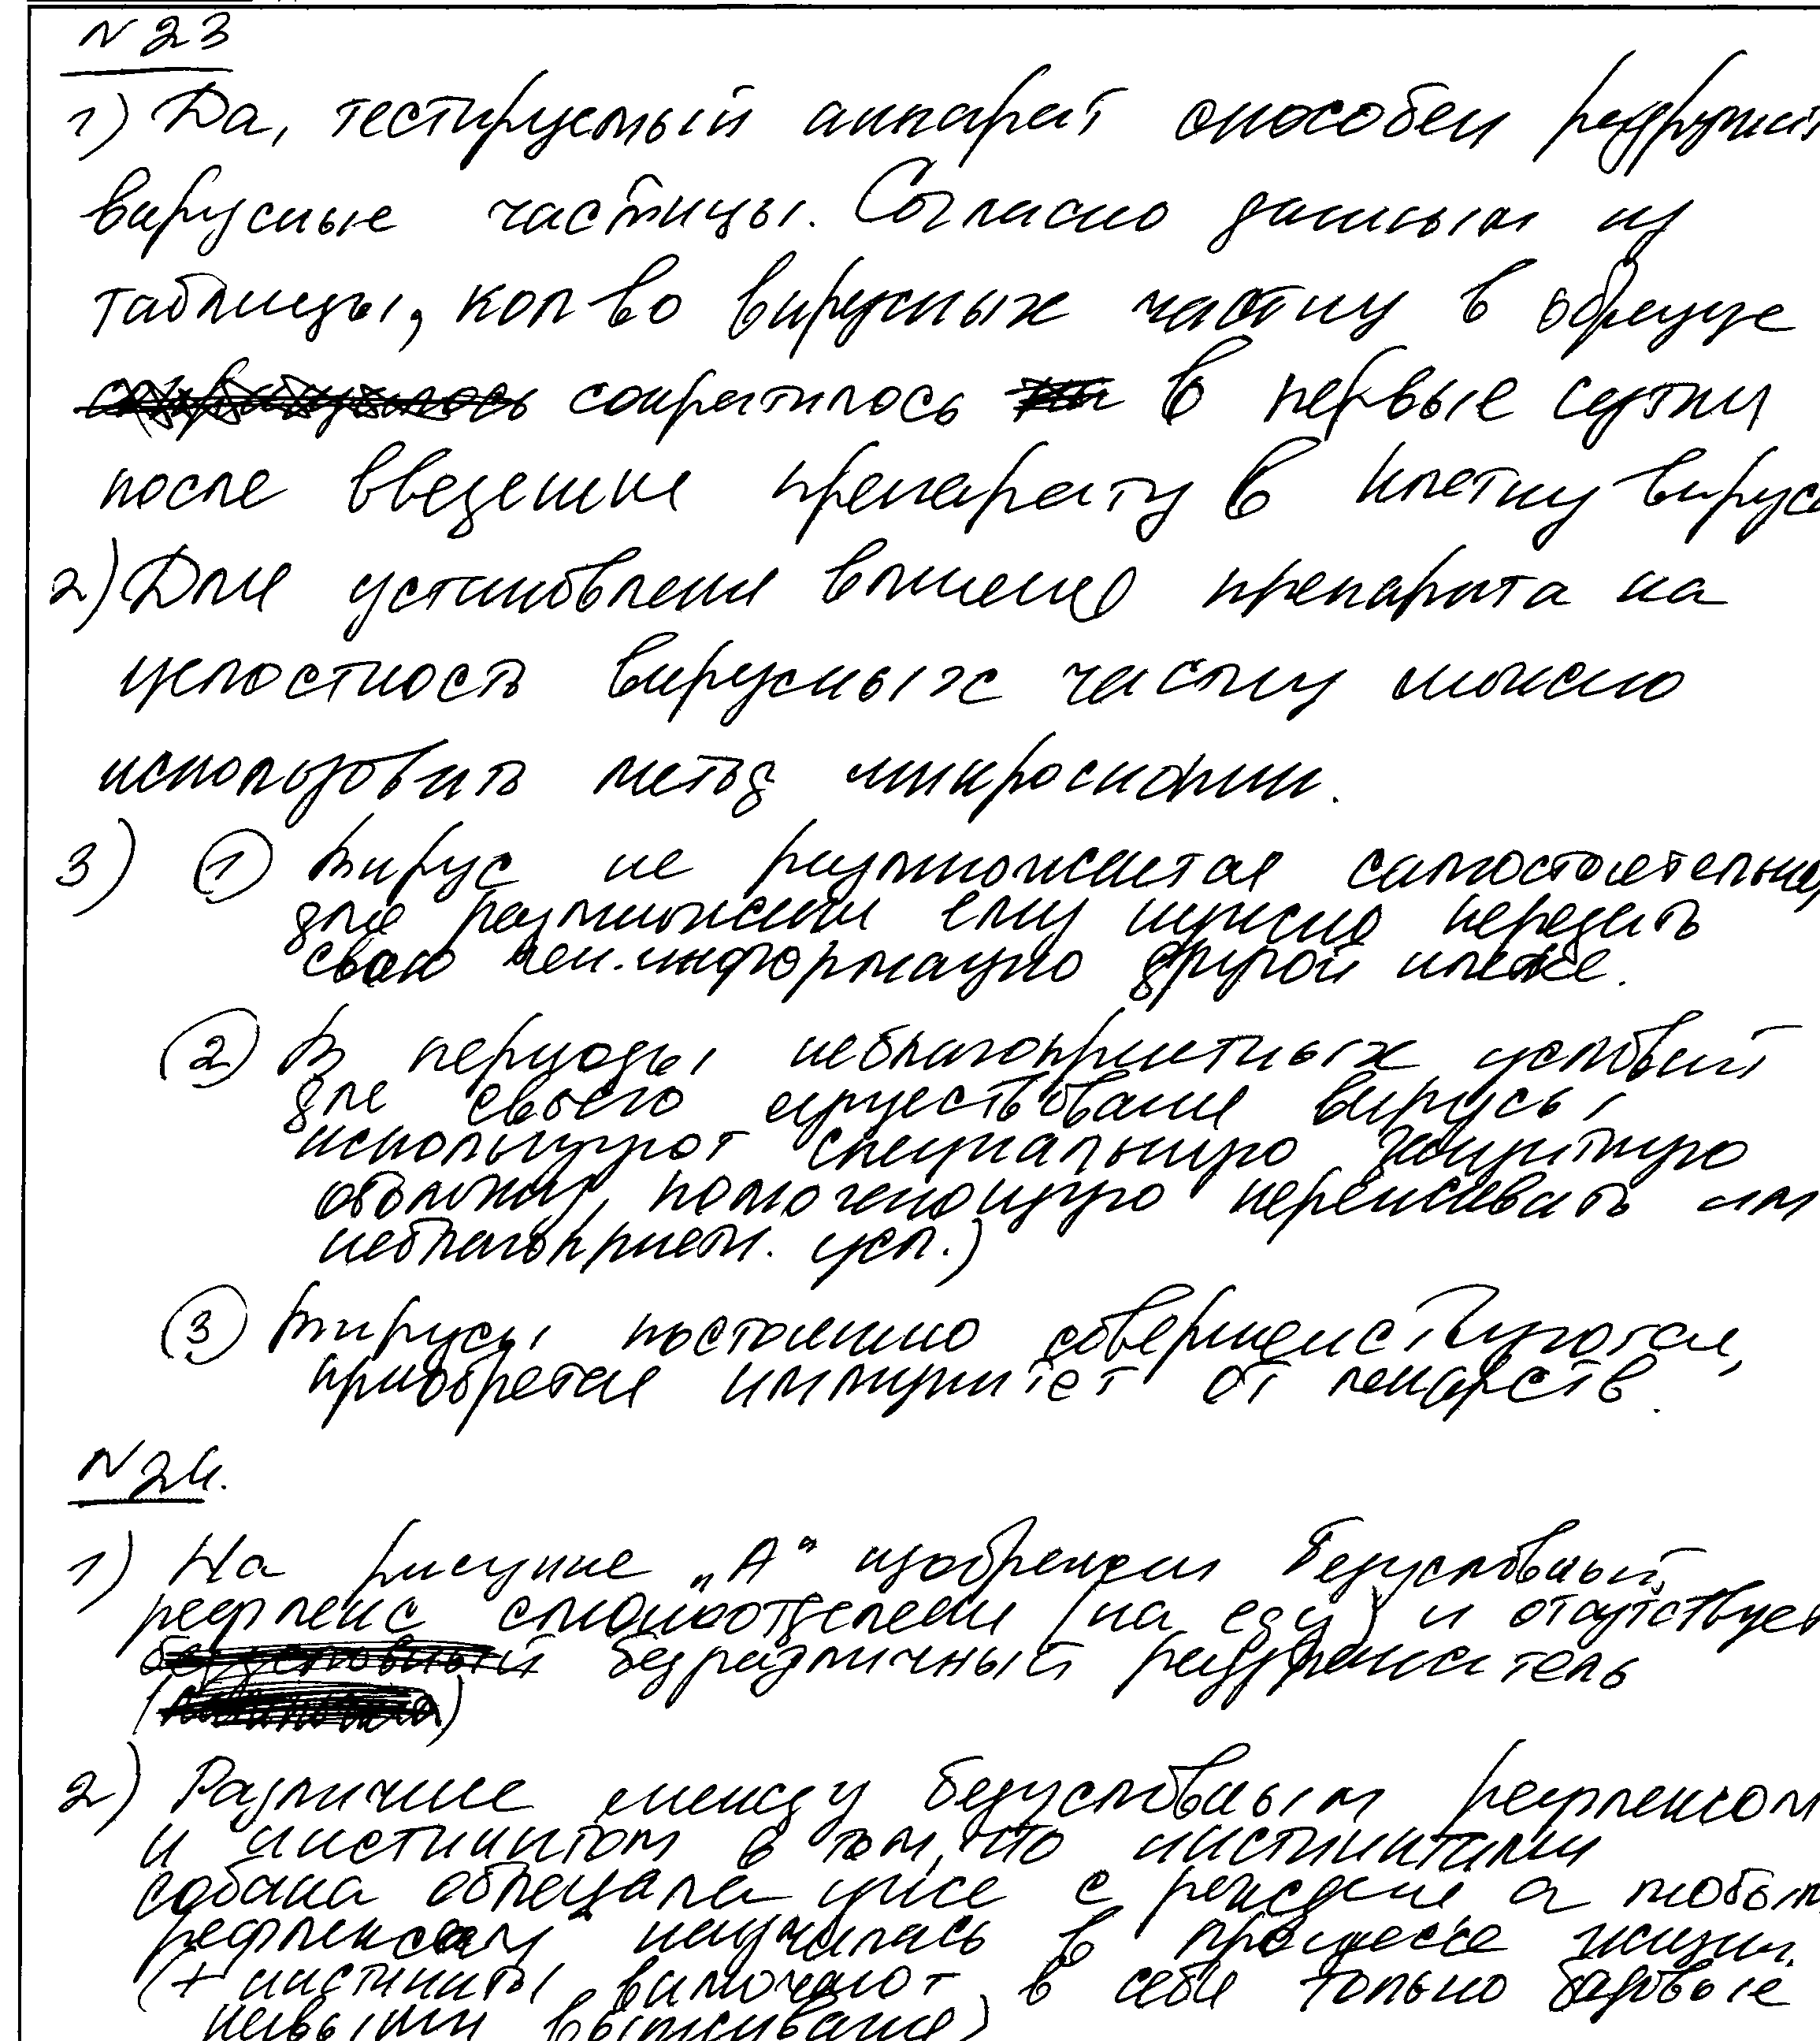 N 23
1) Да, тестируемый аппарат способен разрушит
вирусные частицы. Согласно данным из
таблицы, кол-во вирусных частиц в образце
сократилось в первые сутки
после введения препарату в клетку вируса
2) Для установления влияния препарата на
целостность вирусных частиц можно
использовать метод микроскопии.
3) ① Вирус не размножается самостоятельно,
для размножения ему нужно передать
свою ген.информацию другой клетке.
② В периоды неблагоприятных условий
для своего существования вирусы
используют специальную защитную
оболочку, помогающую переживать им
неблагоприят. усл.)
③ Вирусы постоянно совершенствуются,
приобретая иммунитет от лекарств.
N 24.
1) На рисунке „А“ изображен безусловный
рефлекс слюноотделения (на еду) и отсутствует
безразличный раздражитель
2) Различие между безусловным рефлексом
и инстинктом в том, что инстинктами
собака обладала уже с рождения а любым
рефлексам научилась в процессе жизни.
(+ инстинкты включают в себя только базовые
навыки выживания)